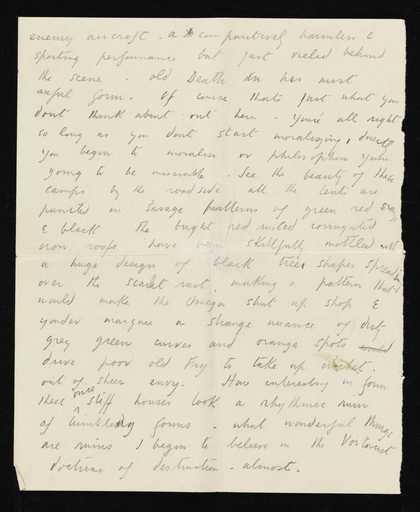 enemy aircraft - a comparatively harmless &
sporting performance but just veiled behind
the scene - old Death in his most
awful form. Of course that's just what you
don't think about out here - you're all right
so long as you don't start moralising, directly
you begin to moralise or philosophise you're
going to be miserable. See the beauty of these
camps by the roadside all the tents are
painted in savage patterns of green red grey
& black the bright red rusted corrugated
iron roofs have been skilfully mottled with
a huge design of black trees shapes spread
over the scarlet rust, making a pattern that
would make the Omega shut up shop &
yonder marquee a strange nuance of dirty
grey green curves and orange spots would
drive poor old Fry to take up cricket
out of sheer envy. How interesting in form
these once stiff houses look a rhythmic ruin
of tumbledry forms - what wonderful things
are ruins I begin to believe in the Vorticist
doctrine of destruction - almost.